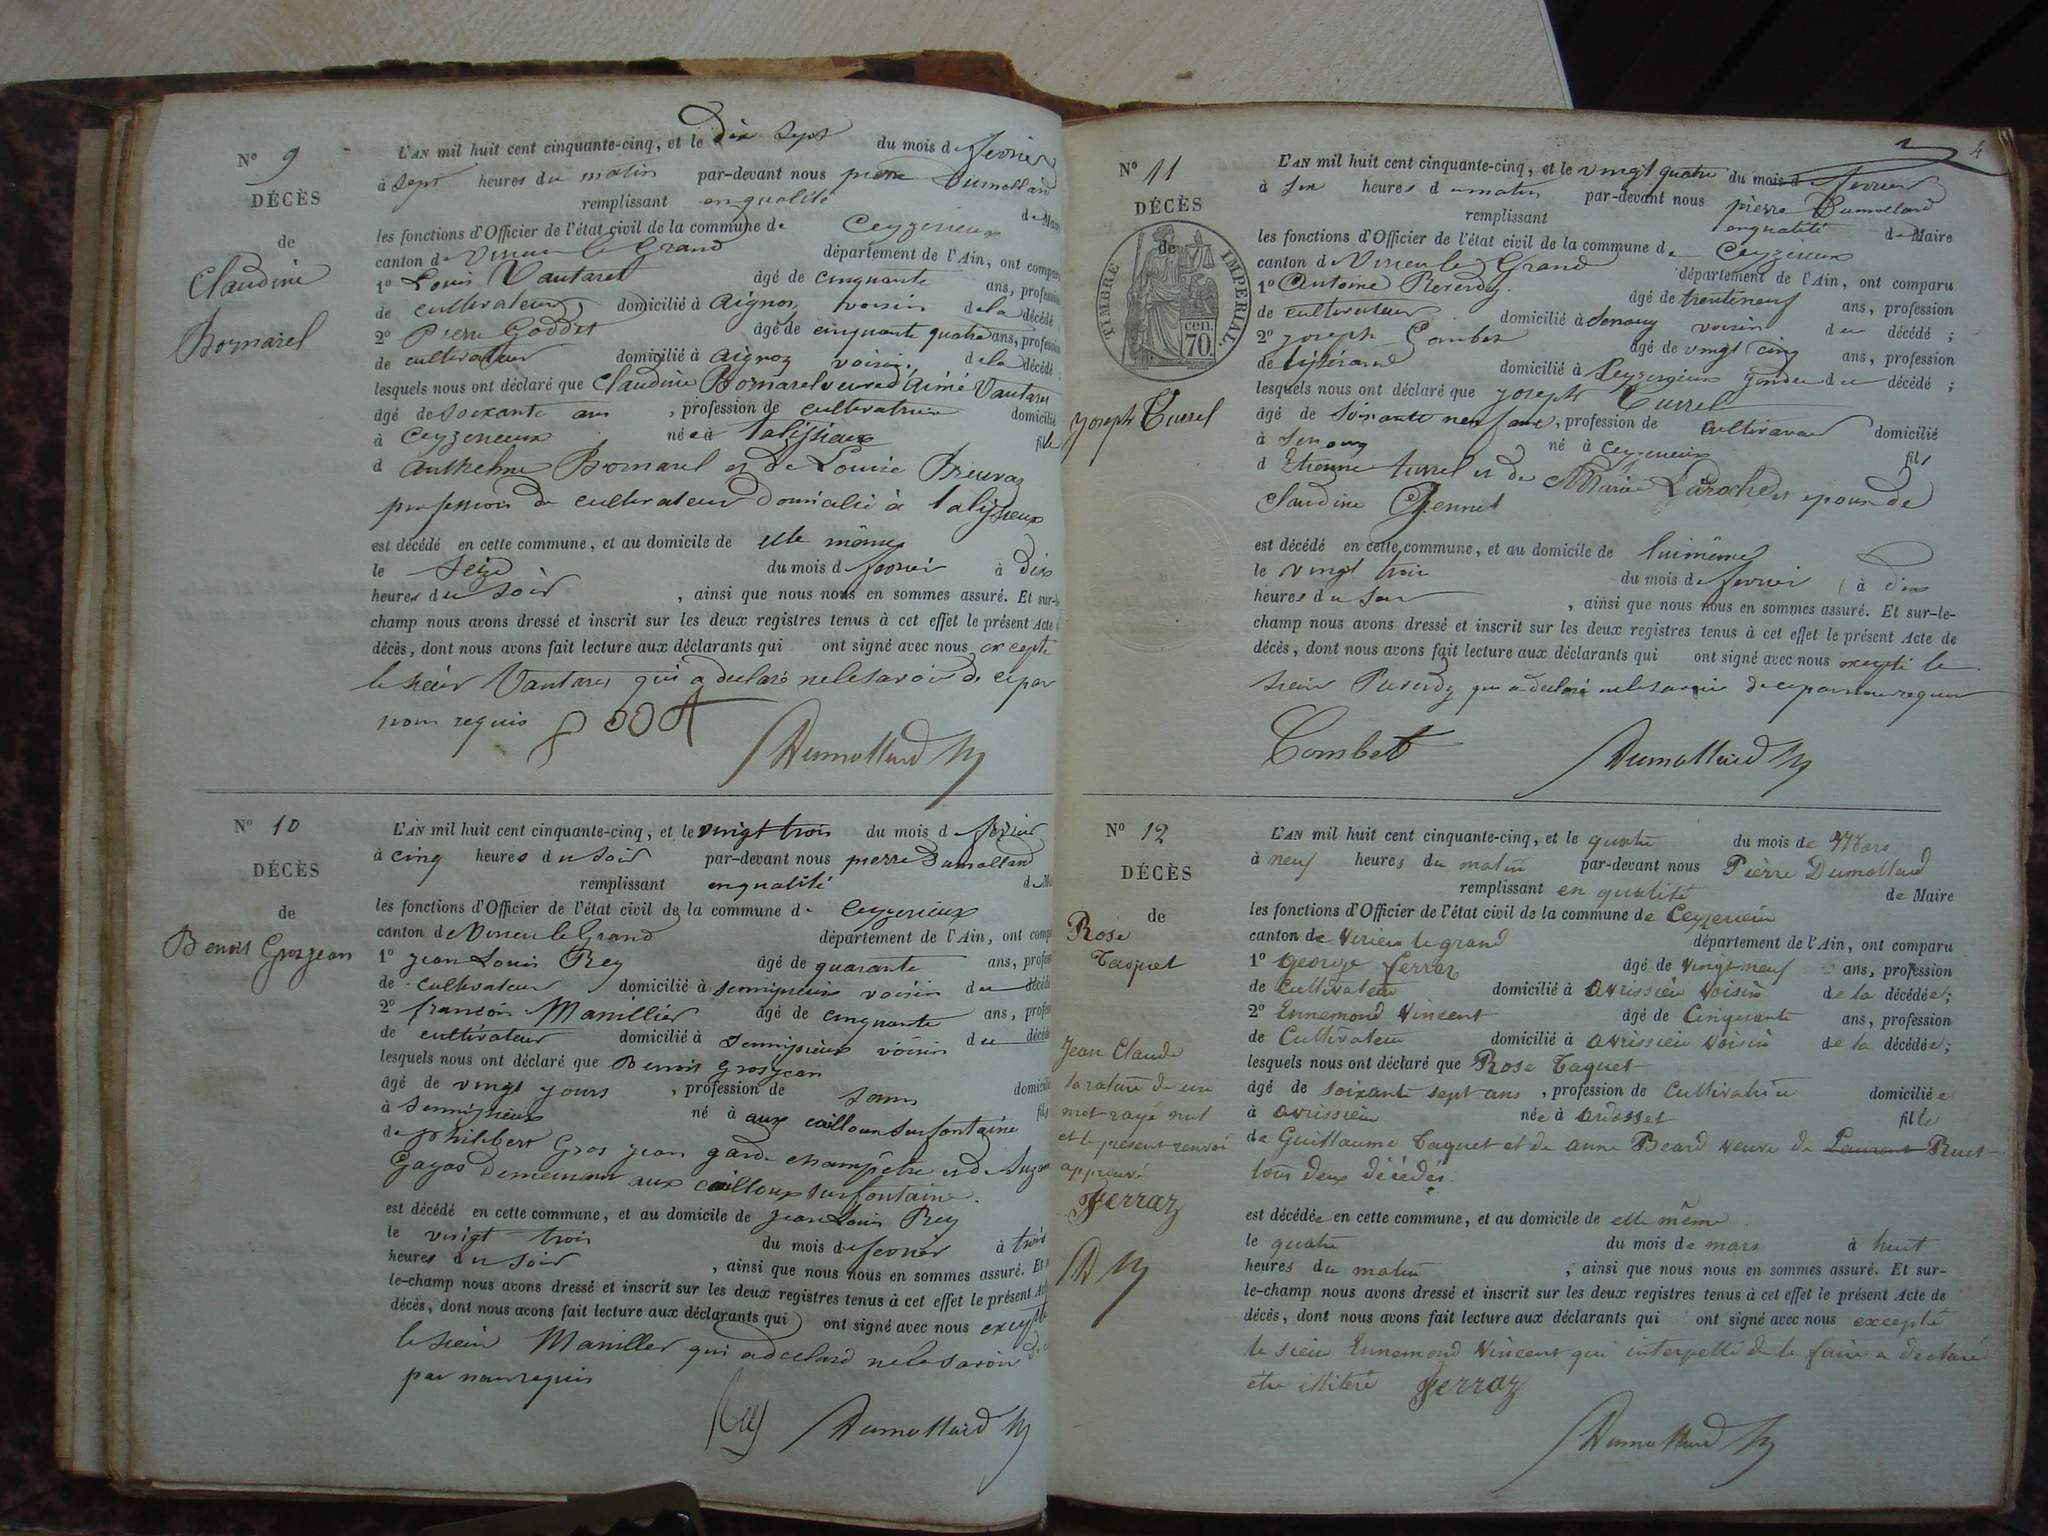 N° 9
DÉCÈS
de
Claudine
Bornarel
L'AN mil huit cent cinquante-cinq, et le dix sept du mois d fevrier
à sept heures du matin par-devant nous pierre Dumollard
remplissant en qualité de Maire
les fonctions d'Officier de l'état civil de la commune de Ceyzerieux
canton de Virieu le Grand département de l'Ain, ont comparu
1° Louis Vautaret âgé de cinquante ans, profession
de cultivateur, domicilié à aignoz voisin de la décédé
2° Pierre Goddet âgé de cinquante quatre ans, profession
de cultivateur domicilié à aignoz voisin de la décédé
lesquels nous ont déclaré que Claudine Bornarel veuve d'aimé Vautaret
âgé de soixante ans, profession de cultivatrice domicilié
à Ceyzerieux née à talissieux fille
d anthelme Bornarel et de Louise
profession de cultivateur domicilié à talissieux
est décédé en cette commune, et au domicile de elle même
le seize du mois d fevrier à dix
heures du soir, ainsi que nous nous en sommes assuré. Et sur-le-
champ nous avons dressé et inscrit sur les deux registres tenus à cet effet le présent Acte
décès, dont nous avons fait lecture aux déclarants qui ont signé avec nous excepté
le sieur Vautaret qui a declaré ne le savoir de ce par
nous requis
Dumollard
N° 10
DÉCÈS
de
Benoit Grosjean
L'AN mil huit cent cinquante-cinq, et le vingt trois du mois d fevrier
à cinq heures du soir par-devant nous pierre Dumollard
remplissant en qualité de
les fonctions d'Officier de l'état civil de la commune de Ceyzerieux
canton de Virieu le Grand département de l'Ain, ont
1° jean Louis Rey âgé de quarante ans,
de cultivateur domicilié à voisin du décédé
2° françois Manillier âgé de cinquante ans,
de cultivateur domicilié à voisin du décédé
lesquels nous ont déclaré que Benoit Grosjean
âgé de vingt jours, profession de sans
à né à aux cailloux sur fontaine fils
de philibert Gros jean garde champêtre et de
Gayas demeurant aux cailloux sur fontaine.
est décédé en cette commune, et au domicile de jean Louis Rey
le vingt trois du mois de fevrier à trois
heures du soir, ainsi que nous nous en sommes assuré. Et
le-champ nous avons dressé et inscrit sur les deux registres tenus à cet effet le présent
décès, dont nous avons fait lecture aux déclarants qui ont signé avec nous excepté
le sieur Maniller qui a declaré ne le savoir de
par nous requis
Rey Dumollard
4
N° 11
DÉCÈS
de
TIMBRE IMPERIAL
cen.
70
joseph Turrel
L'AN mil huit cent cinquante-cinq, et le vingt quatre du mois d fevrier
à six heures du matin par-devant nous pierre Dumollard
remplissant en qualité de Maire
les fonctions d'Officier de l'état civil de la commune de Ceyzerieux
canton de Virieu le Grand département de l'Ain, ont comparu
1° Antoine âgé de trente neuf ans, profession
de cultivateur domicilié à voisin du décédé;
2° joseph Combet âgé de vingt cinq ans, profession
de tisserand domicilié à Ceyzerieux gendre du décédé;
lesquels nous ont déclaré que joseph Turrel
âgé de soixante neuf ans, profession de cultivateur domicilié
à né à Ceyzerieux fils
d Etienne turrel et de Marie Laroche et epoux de
Claudine
est décédé en cette commune, et au domicile de lui même
le vingt trois du mois de fevrier à dix
heures du soir, ainsi que nous nous en sommes assuré. Et sur-le-
champ nous avons dressé et inscrit sur les deux registres tenus à cet effet le présent Acte de
décès, dont nous avons fait lecture aux déclarants qui ont signé avec nous excepté le
sieur qui a declaré ne le savoir de ce par nous requis
Combet Dumollard
N° 12
DÉCÈS
de
Rose
Taquet
Jean Claude
la rature de un
mot rayé nul
et le present renvoi
approuvé
Ferraz
L'AN mil huit cent cinquante-cinq, et le quatre du mois de Mars
à neuf heures du matin par-devant nous Pierre Dumollard
remplissant en qualité de Maire
les fonctions d'Officier de l'état civil de la commune de Ceyzerieu
canton de virieu le grand département de l'Ain, ont comparu
1° george ferraz âgé de vingt neuf ans, profession
de Cultivateur domicilié à avrissieu voisin de la décédée;
2° Ennemond Vincent âgé de Cinquante ans, profession
de Cultivateur domicilié à avrissieu voisin de la décédée;
lesquels nous ont déclaré que Rose Taquet
âgé de soixante sept ans, profession de Cultivatrice domiciliée
à avrissieu née à ardosset fille
de Guillaume Taquet et de anne Beard veuve de Laurent Ruet
tous deux décédés.
est décédée en cette commune, et au domicile de elle même
le quatre du mois de mars à huit
heures du matin, ainsi que nous nous en sommes assuré. Et sur-
le-champ nous avons dressé et inscrit sur les deux registres tenus à cet effet le présent Acte de
décès, dont nous avons fait lecture aux déclarants qui ont signé avec nous excepté
le sieur Ennemond Vincent qui interpellé de le faire a declaré
etre illiteré Ferraz
Dumollard